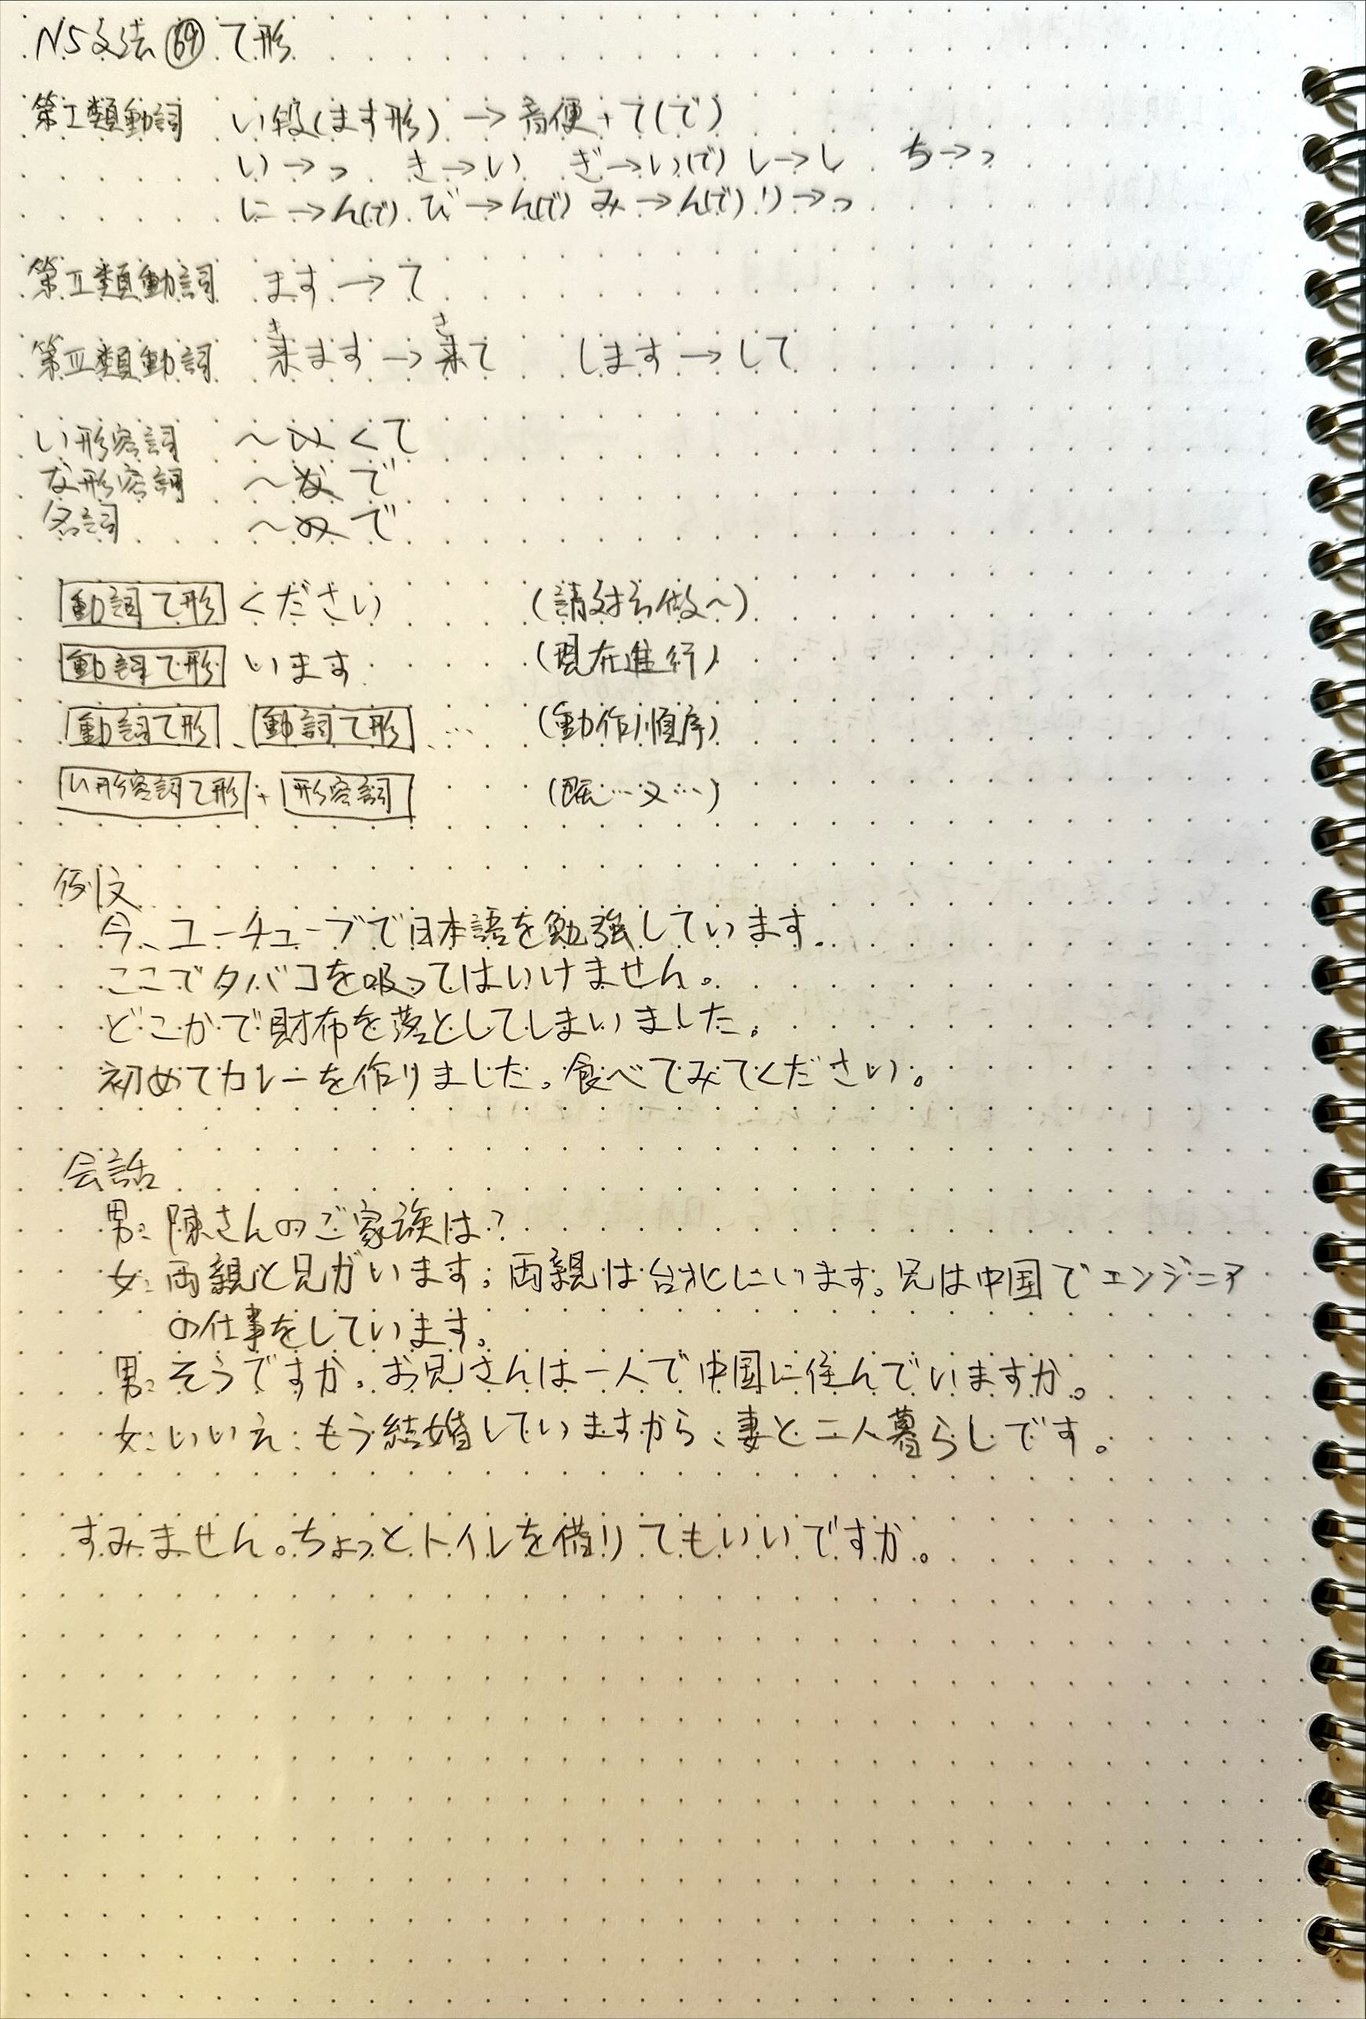 N5文法 69 て形
第Ⅰ類動詞 い段(ます形) → 音便 + て(で)
い→っ き→い ぎ→い(で) し→し ち→っ
に→ん(で) び→ん(で) み→ん(で) り→っ
第Ⅱ類動詞 ます→て
第Ⅲ類動詞 来ます→来て します→して
い形容詞 〜いくて
な形容詞 〜なで
名詞 〜ので
動詞て形 ください (請対方做〜)
動詞て形 います (現在進行)
動詞て形、動詞て形、… (動作順序)
い形容詞て形 + 形容詞 (既…又…)
例文
今、ユーチューブで日本語を勉強しています。
ここでタバコを吸ってはいけません。
どこかで財布を落としてしまいました。
初めてカレーを作りました。食べてみてください。
会話
男：陳さんのご家族は？
女：両親と兄がいます。両親は台北にいます。兄は中国でエンジニア
の仕事をしています。
男：そうですか。お兄さんは一人で中国に住んでいますか。
女：いいえ、もう結婚していますから、妻と二人暮らしです。
すみません。ちょっとトイレを借りてもいいですか。